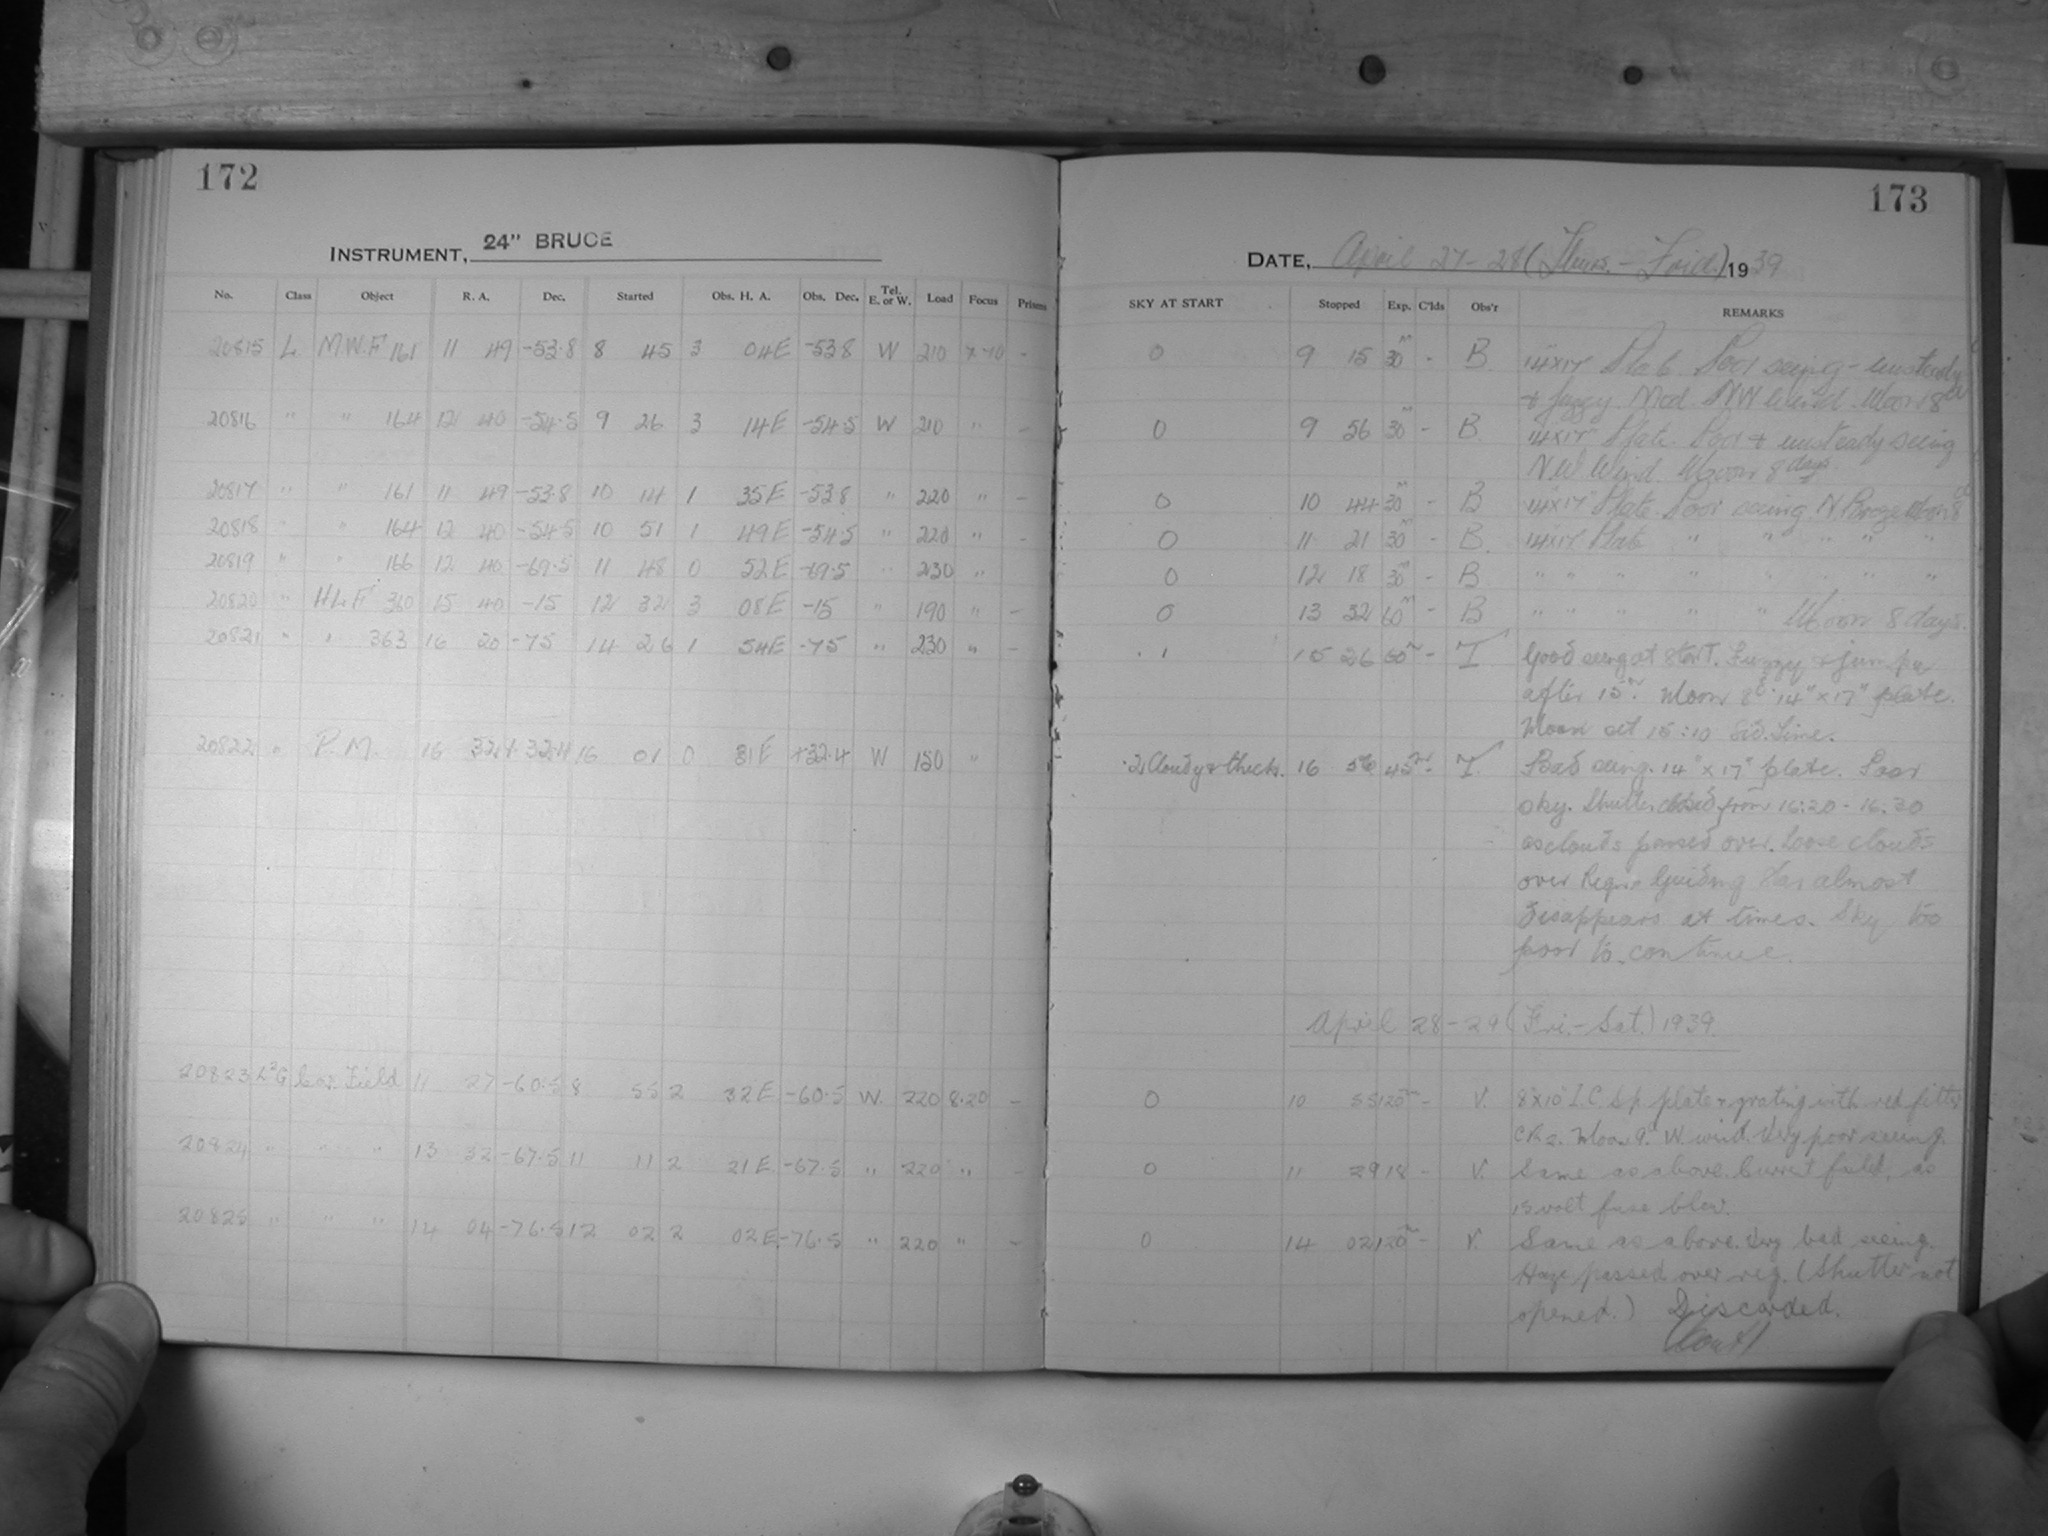 172
INSTRUMENT, 24" BRUCE
No. Class Object R. A. Dec. Started Obs. H. A. Obs. Dec. Tel. E. or W. Load Focus Prisms
20815 L M.W.F 161 11 49 -53.8 8 45 3 04E -53.8 W 210 7.70 -
20816 " " 164 12 40 -54.5 9 26 3 14E -54.5 W 210 " -
20817 " " 161 11 49 -53.8 10 14 1 35E -53.8 " 220 " -
20818 " " 164 12 40 -54.5 10 51 1 49E -54.5 " 220 " -
20819 " " 166 12 40 -69.5 11 48 0 52E -69.5 " 230 "
20820 " H.L.F 360 15 40 -15 12 32 3 08E -15 " 190 " -
20821 " " 363 16 20 -75 14 26 1 54E -75 " 230 " -
20822 " P.M. 16 32.4 32.4 16 01 0 31E +32.4 W 150 "
20823 L²G Car. Field 11 27 -60.5 8 55 2 32E -60.5 W. 220 8.20 -
20824 " " " 13 32 -67.5 11 11 2 21E -67.5 " 220 " -
20825 " " " 14 04 -76.5 12 02 2 02E -76.5 " 220 " -
173
DATE, April 27-28 (Thurs. - Frid.) 1939
SKY AT START Stopped Exp. C'lds Obs'r REMARKS
0 9 15 30ᵐ - B. 14x17 Plate. Poor seeing - unsteady
& fuzzy. Mod. NW Wind. Moon 8d
0 9 56 30ᵐ - B. 14x17 Plate. Poor & unsteady seeing
NW Wind. Moon 8 days.
0 10 44 30ᵐ - B 14x17 Plate. Poor seeing. N. Breeze Moon 8d
0 11 21 30 - B. 14x17 Plate " " " " "
0 12 18 30ᵐ - B " " " " " " "
0 13 32 60ᵐ - B " " " " " Moon 8 days.
.1 15 26 60ᵐ - T Good seeing at start. Fuzzy &
after 15ʰ. Moon 8ᵈ. 14" x 17" plate.
Moon set 15:10 Sid. Time.
.2 Cloudy & thick. 16 56 45ᵐ - T. Bad seeing. 14" x 17" plate. Poor
sky. Shutter closed from 16:20 - 16.30
as clouds passed over. Loose clouds
over Region. Guiding star almost
disappears at times. Sky too
poor to continue.
April 28-29 (Fri. - Sat.) 1939.
0 10 55 120ᵐ - V. 8x10 I.C Sp. plate & grating with red filter
Moon 9ᵈ. W wind. Very poor seeing.
0 11 29 18 - V. Same as above. Current failed, as
15 volt fuse blew.
0 14 02 120ᵐ - V. Same as above. Very bad seeing.
Haze passed over reg. (Shutter not
opened.) Discarded.